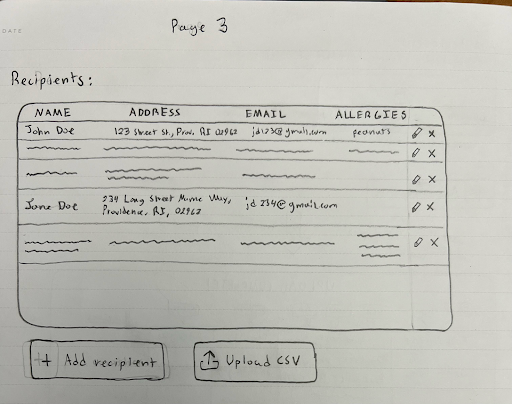 DATE
Page 3
Recipients:
NAME ADDRESS EMAIL ALLERGIES
John Doe 123 Street St, Prov. RI 02962 jd123@gmail.com peanuts X
X
X
Jane Doe 234 Long Street Name Way, Providence, RI, 02962 jd234@gmail.com X
X
+ Add recipient
Upload CSV